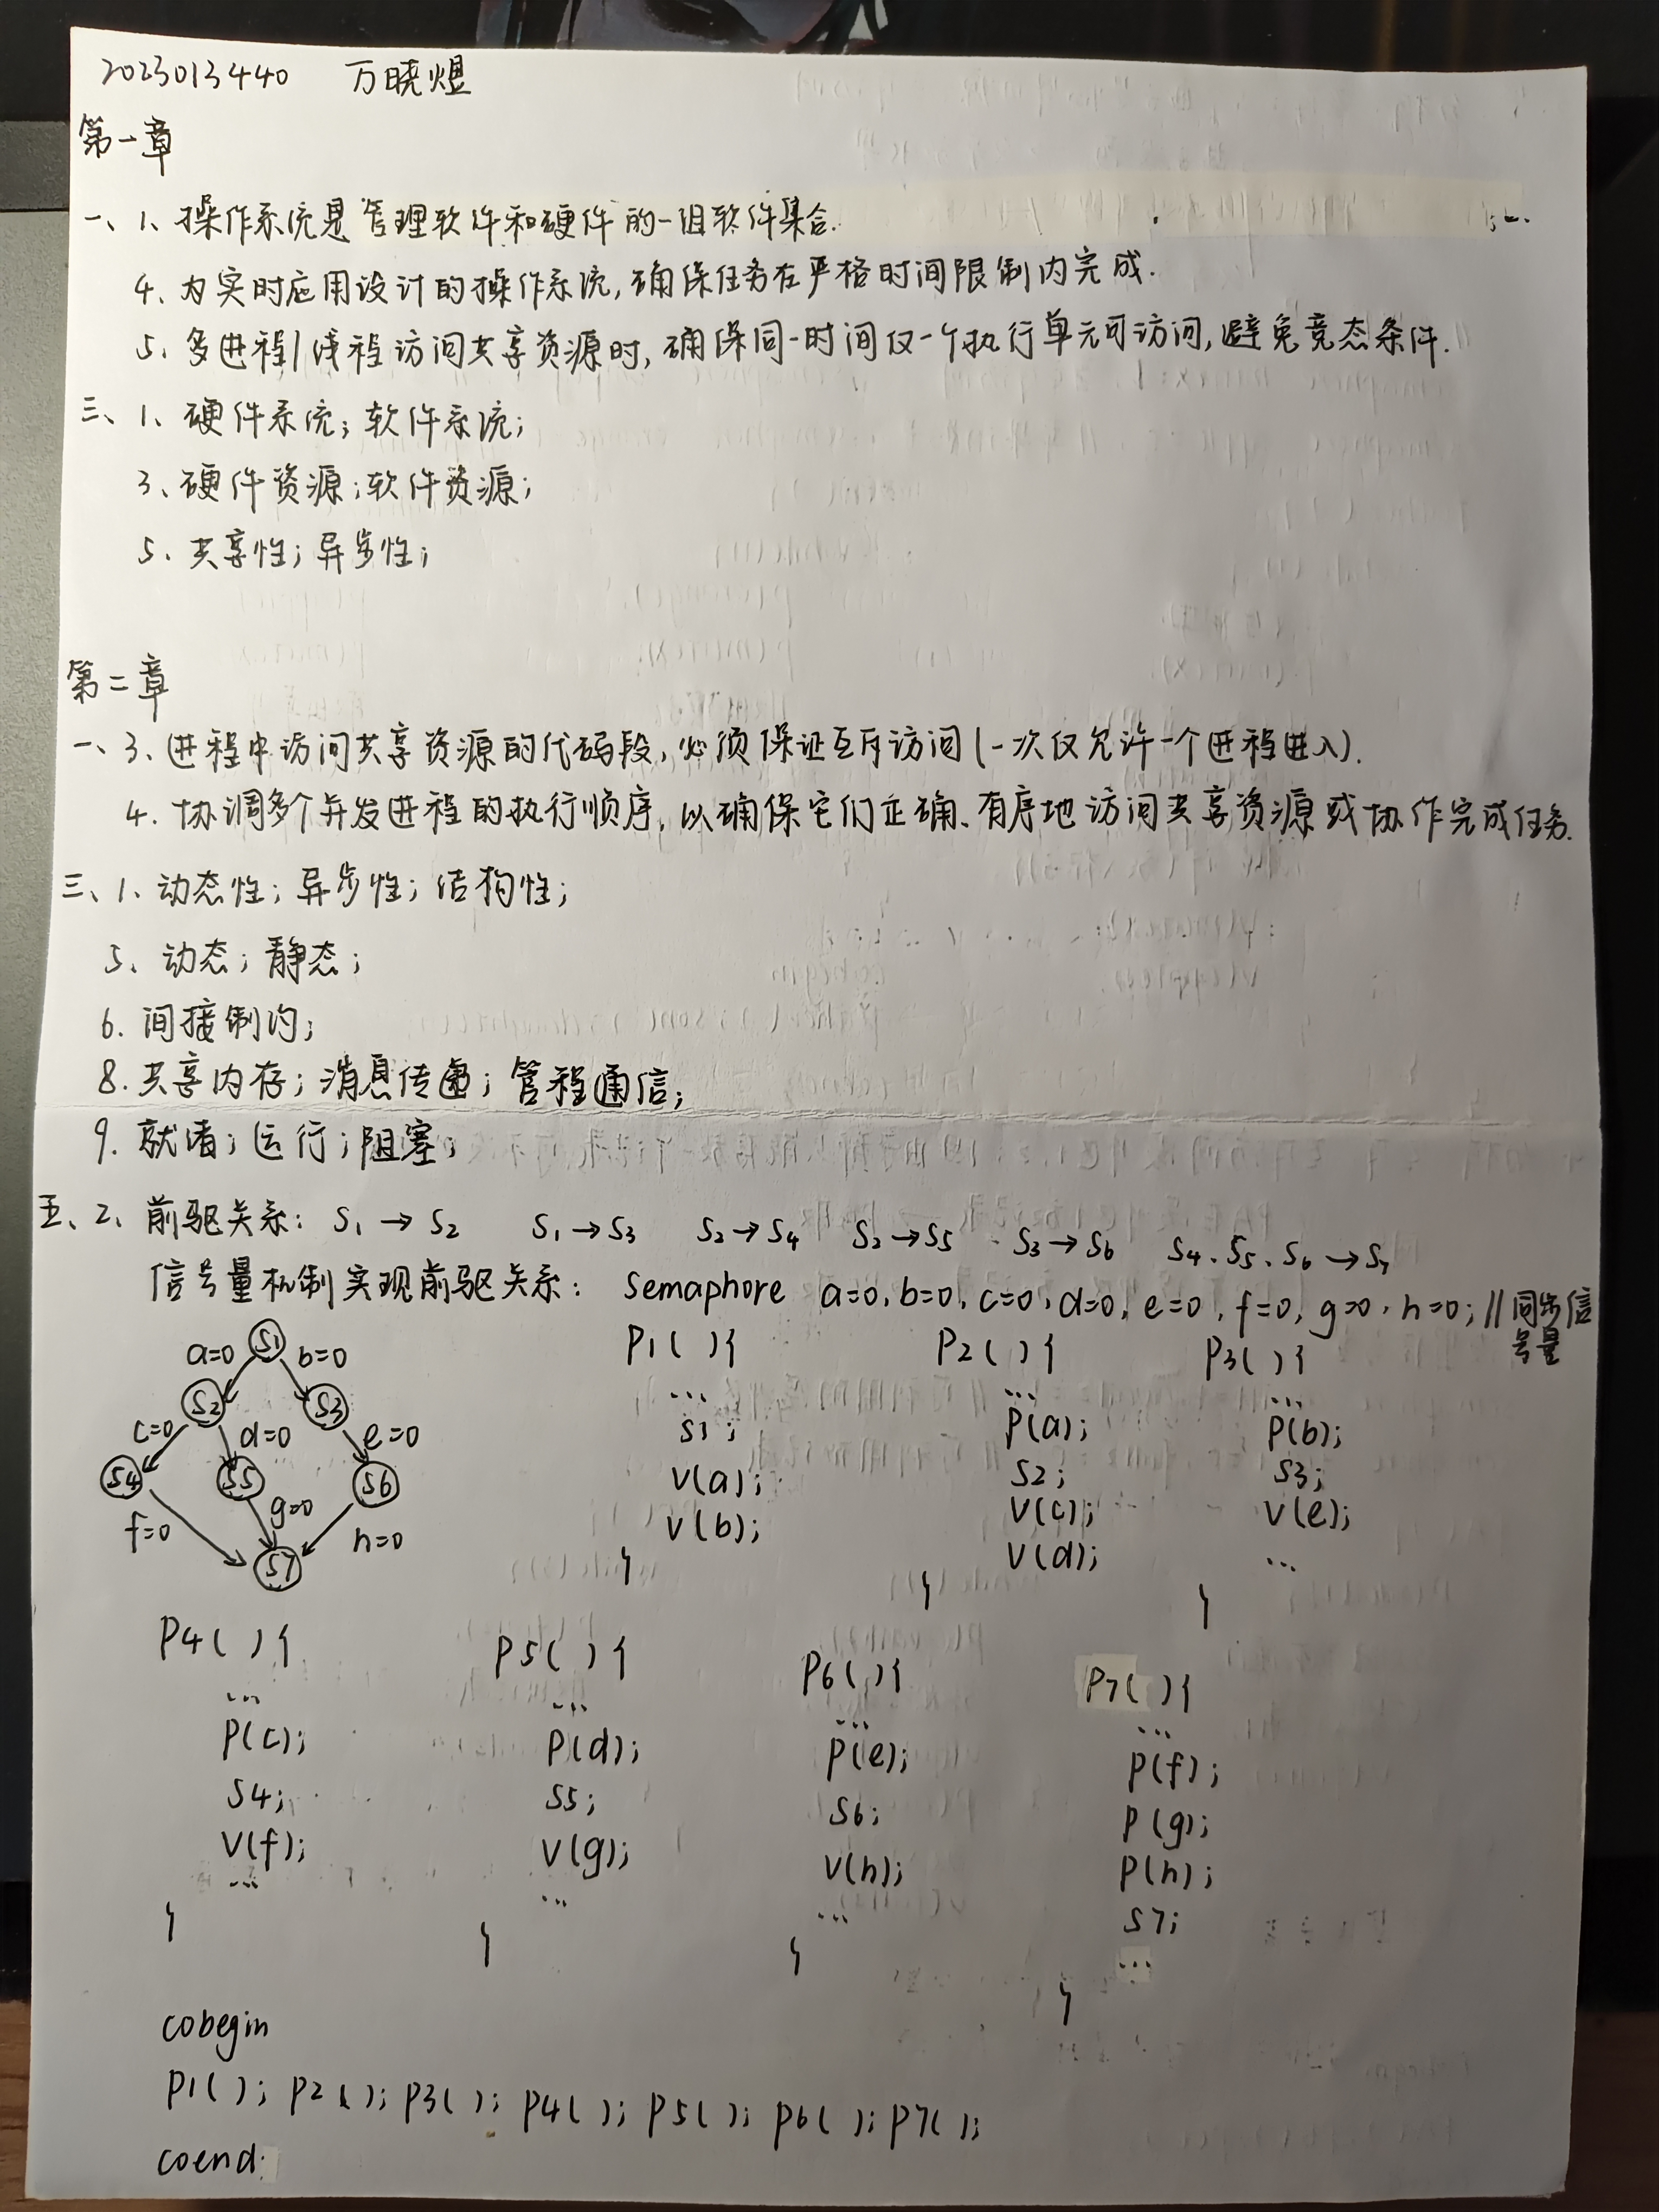 2023013440 万晓煜
第一章
一、1、操作系统是管理软件和硬件的一组软件集合.
4、为实时应用设计的操作系统,确保任务在严格时间限制内完成.
5、多进程/线程访问共享资源时,确保同一时间仅一个执行单元可访问,避免竞态条件.
三、1、硬件系统;软件系统;
3、硬件资源;软件资源;
5、共享性;异步性;
第二章
一、3、进程中访问共享资源的代码段,必须保证互斥访问(一次仅允许一个进程进入).
4.协调多个并发进程的执行顺序,以确保它们正确、有序地访问共享资源或协作完成任务.
三、1.动态性;异步性;结构性;
5、动态;静态;
6.间接制约;
8.共享内存;消息传递;管程通信;
9.就绪;运行;阻塞;
五、2、前驱关系: S1→S2 S1→S3 S2→S4 S2→S5 S3→S6 S4、S5、S6→S7
信号量机制实现前驱关系: semaphore a=0,b=0,c=0,d=0,e=0,f=0,g=0,h=0; //同步信号量
S1
a=0 b=0
S2 S3
c=0 d=0 e=0
S4 S5 S6
f=0 g=0 h=0
S7
P1( ){
...
S1;
V(a);
V(b);
}
P2( ){
...
P(a);
S2;
V(c);
V(d);
}
P3( ){
...
P(b);
S3;
V(e);
...
}
P4( ){
...
P(c);
S4;
V(f);
...
}
P5( ){
...
P(d);
S5;
V(g);
...
}
P6( ){
...
P(e);
S6;
V(h);
...
}
P7( ){
...
P(f);
P(g);
P(h);
S7;
...
}
cobegin
P1( ); P2( ); P3( ); P4( ); P5( ); P6( ); P7( );
coend;